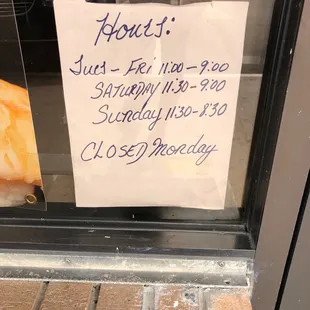 Hours:
Tues - Fri 11:00 - 9:00
SATURDAY 11:30 - 9:00
Sunday 11:30 - 8:30
CLOSED Monday